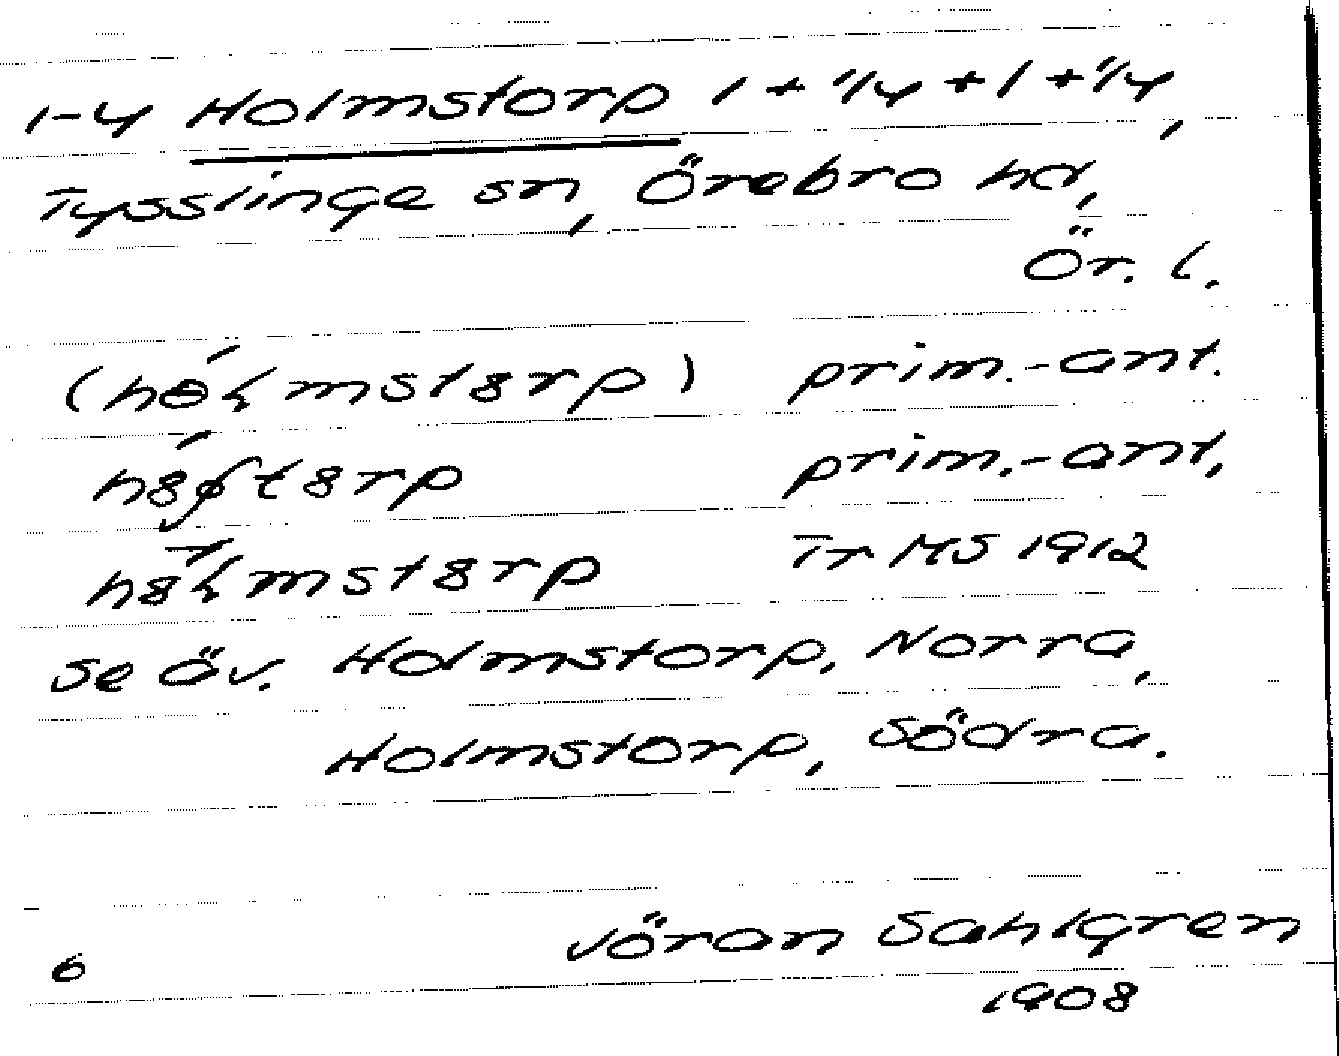 1-4 Holmstorp 1 + 1/4 + 1 + 1/4,
Tysslinge sn, Örebro hd,
Ör. l.
prim.-ant.
prim.-ant.
Tr MS 1912
se äv. Holmstorp, Norra,
Holmstorp, Södra.
6 Jöran Sahlgren
1908